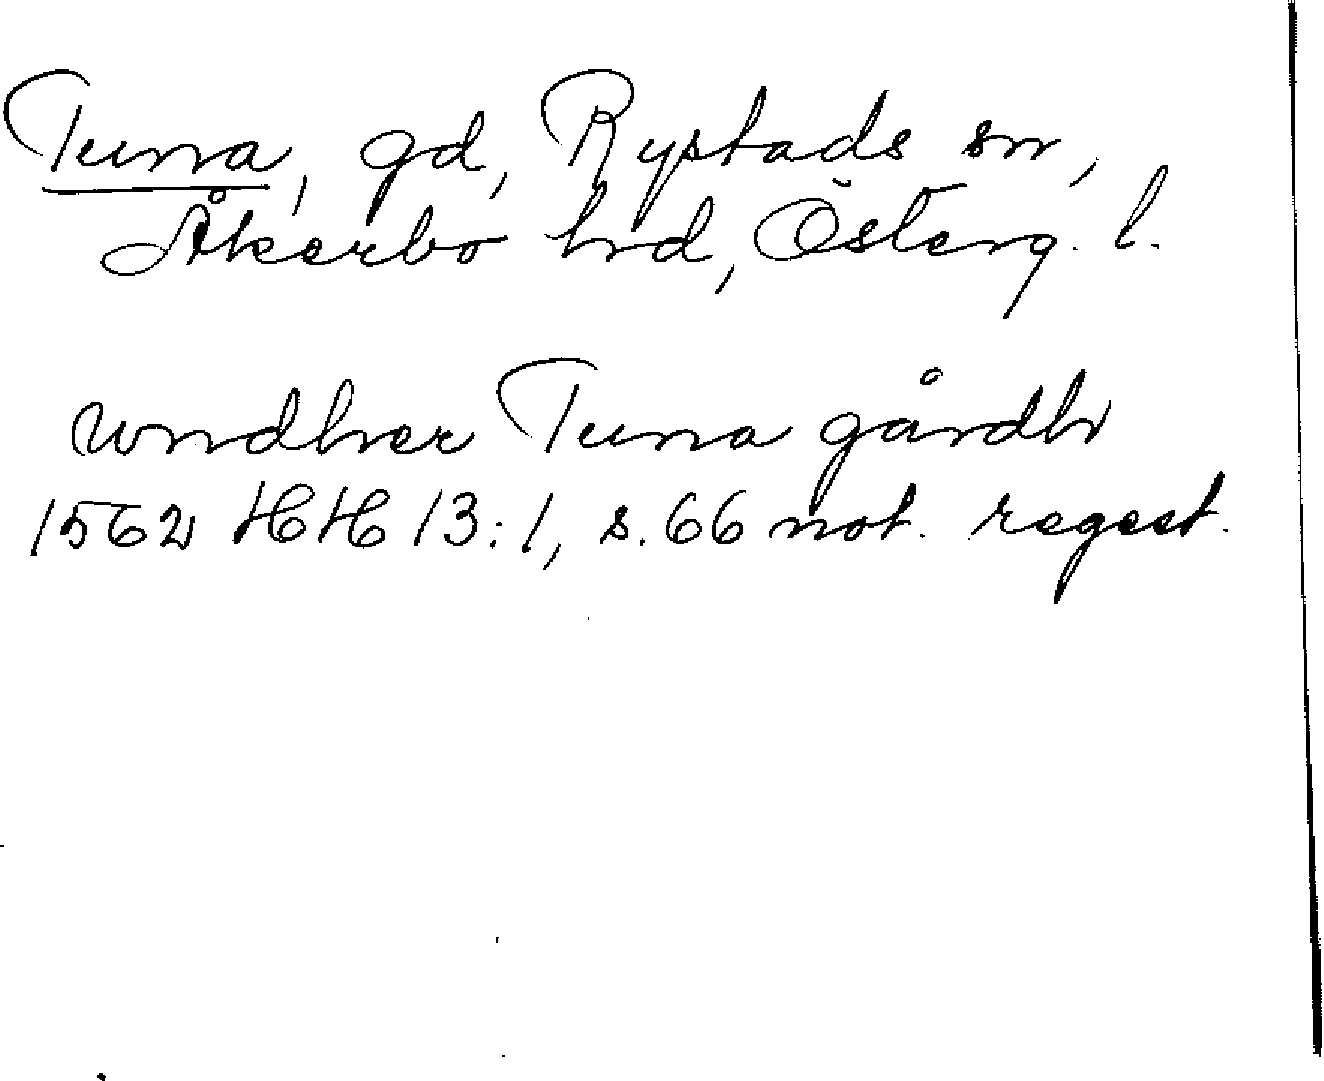 Tuna, gd, Rystads sn,
Åkerbo hd, Österg. l.
wndher Tuna gårdh
1562 HH 13:1, s. 66 not. regest.